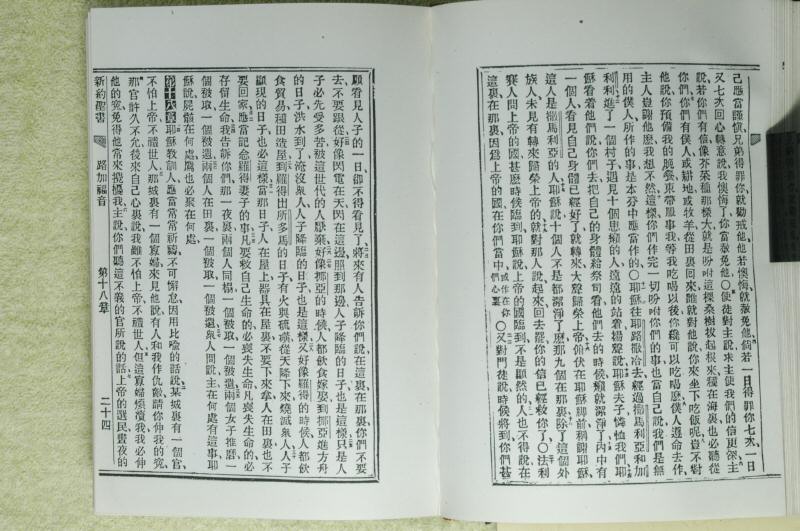 己應當謹愼兄弟得罪你就勸戒他他若懊悔就赦免他倘若一日得罪你七次一日
又七次回心轉意說我懊悔了你當赦免他〇使徒對主說求主使我們的信更深主
說若你們有信像芥菜種那樣大就是吩咐這棵桑樹拔起根來栽在海裏也必聽從
你們你們有僕人或耕地或牧羊從田裏回來誰就對他說你來坐下吃飯呢豈不對
他說你預備我的晚飱束帶服事我等我吃喝以後你纔可以吃喝麽僕人遵命去作
主人豈謝他麽我想不然這樣你們作完一切吩咐你們的事也當自己說我們是無
用的僕人所作的事是本分中應當作的〇耶穌往耶路撒冷去經過撒馬利亞和加
利利進了一個村子遇見十個患癩的人遠遠的站着揚聲說耶穌夫子憐恤我們耶
穌看着他們說你們去把自己的身體給祭司看他們去的時候癩就潔淨了內中有
一個人看見自己身體已經好了就轉來大聲歸榮上帝俯伏在耶穌脚前稱謝耶穌
這人是撒馬利亞人耶穌說十個人不是都潔淨了麽那九個在那裏除了這個外
族人未見有轉來歸榮上帝的就對那人說起來回去罷你的信已經救你了〇法利
賽人問上帝的國甚麽時候臨到耶穌說上帝的國臨到不是顯然的人也不得說在
這裏在那裏因爲上帝的國在你們當中或作在你們心裏〇又對門徒說時候將到你們甚
願看見人子的一日卻不得看見了將來有人告訴你們說在這裏在那裏你們不要
去不要跟從好像閃電在天閃在這邊照到那邊人子降臨的日子也是這樣只是人
子必先受多苦被這世代的人厭棄好像挪亞的時候人都飮食嫁娶到挪亞進方舟
的日子洪水到了淹沒衆人人子降臨的日子也是這樣又好像羅得的時候人都飮
食貿易種田造屋到羅得出所多馬的日子有火與硫磺從天降下來燒滅衆人人子
顯現的日子也必這樣當那日子人在屋上器具在屋裏不要下來拿人在田裏也不
要回家應當記念羅得妻子的事凡要救自己生命的必喪失生命凡喪失生命的必
存留生命我告訴你們那一夜裏兩個人同榻一個被取一個被遺兩個女子推磨一
個被取一個被遺兩個人在田裏一個被取一個被遺衆人問說主在何處有這事耶
穌說屍骸在何處鷹也必聚在何處
第十八章耶穌敎訓人應當常常祈禱不可懈怠因用比喩的話說某城裏有一個官
不怕上帝不禮世人那城裏有一個寡婦來見他說有人和我作仇敵請你伸我的寃
那官許久不允後來自己心裏說我雖不怕上帝不禮世人但這寡婦煩瀆我我必伸
他的寃免得他常來攪擾我主說你們聽這不義的官所說的話上帝的選民晝夜的
新約聖書 路加福音 第十八章 二十四